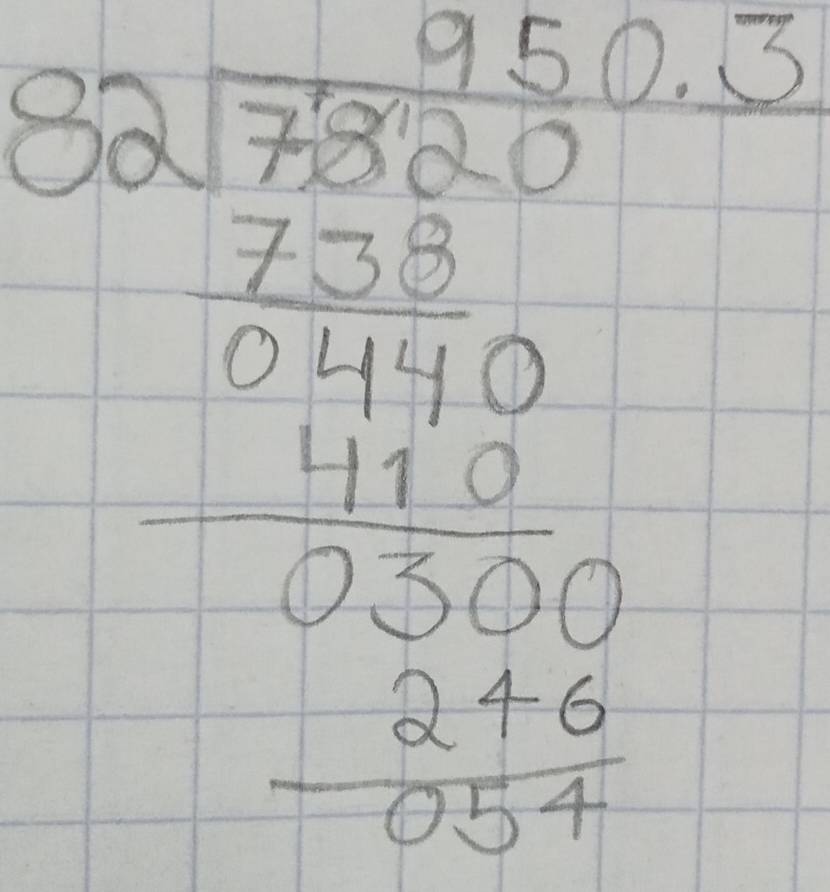 950.3
82 7820
738
0440
410
0300
246
054